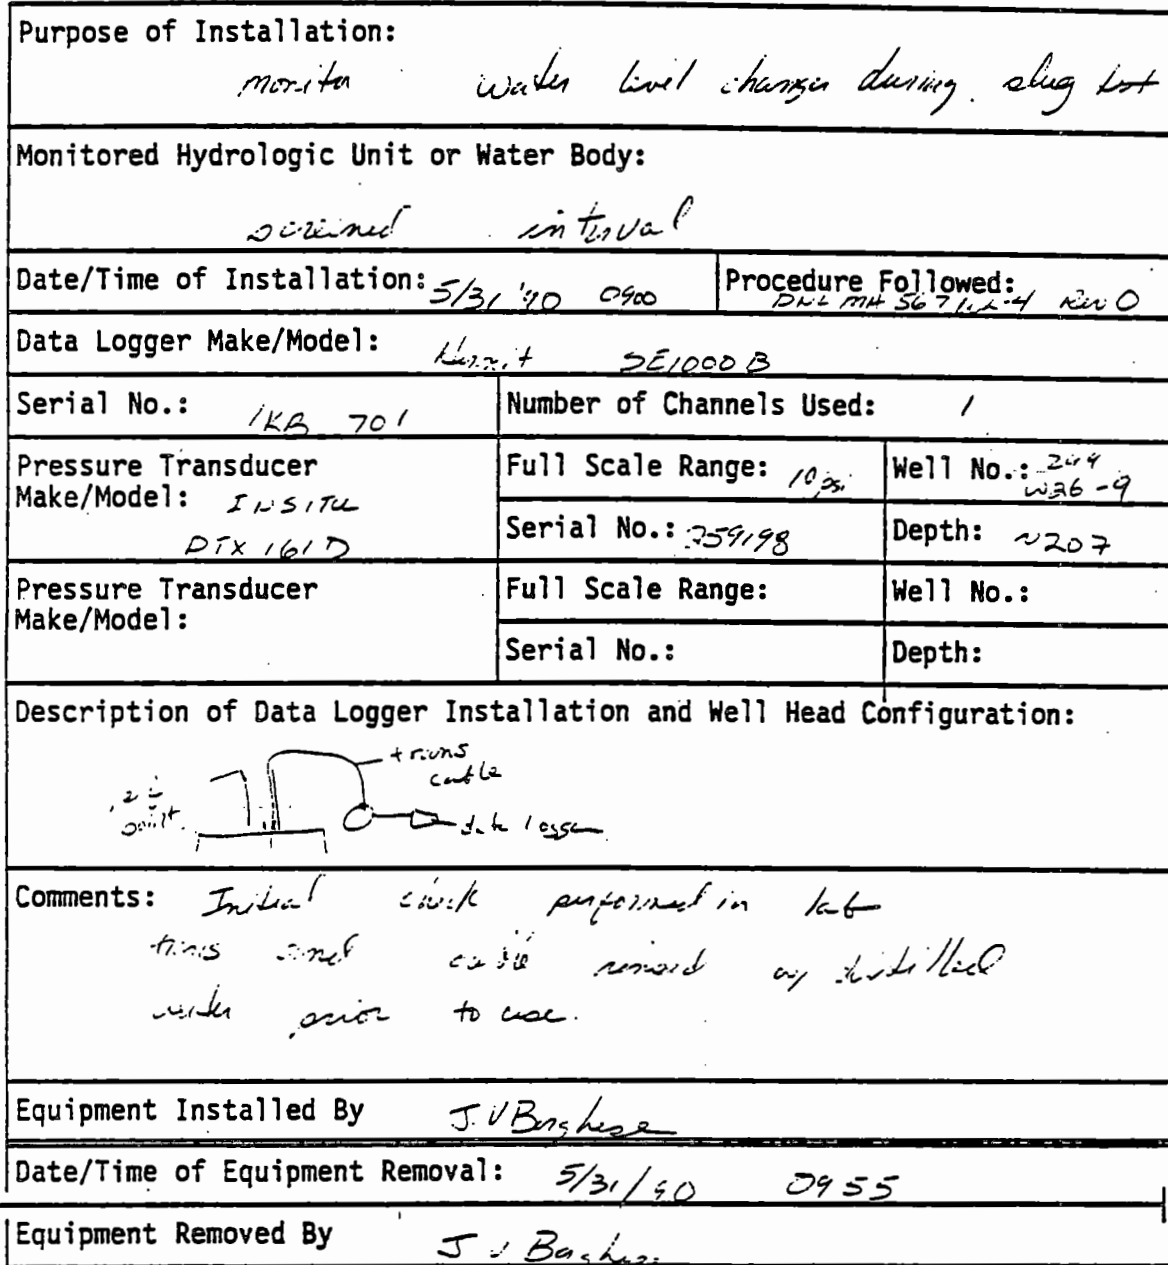 Purpose of Installation:
monitor water level changes during slug test
Monitored Hydrologic Unit or Water Body:
screened interval
Date/Time of Installation: 5/31 '90 0900
Procedure Followed:
PNL MA 567 Rev 0
Data Logger Make/Model: Hermit SE1000B
Serial No.: 1KB 701
Number of Channels Used: 1
Pressure Transducer
Make/Model: INSITU
PTX 161D
Full Scale Range: 10 psi
Well No.: 299
W26-9
Serial No.: 259198
Depth: ~207
Pressure Transducer
Make/Model:
Full Scale Range:
Well No.:
Serial No.:
Depth:
Description of Data Logger Installation and Well Head Configuration:
trans
cable
data logger
Comments: Initial check performed in lab
trans and cable rinsed w/ distilled
water prior to use.
Equipment Installed By J. V Borghese
Date/Time of Equipment Removal: 5/31/90 0955
Equipment Removed By J V Borghese